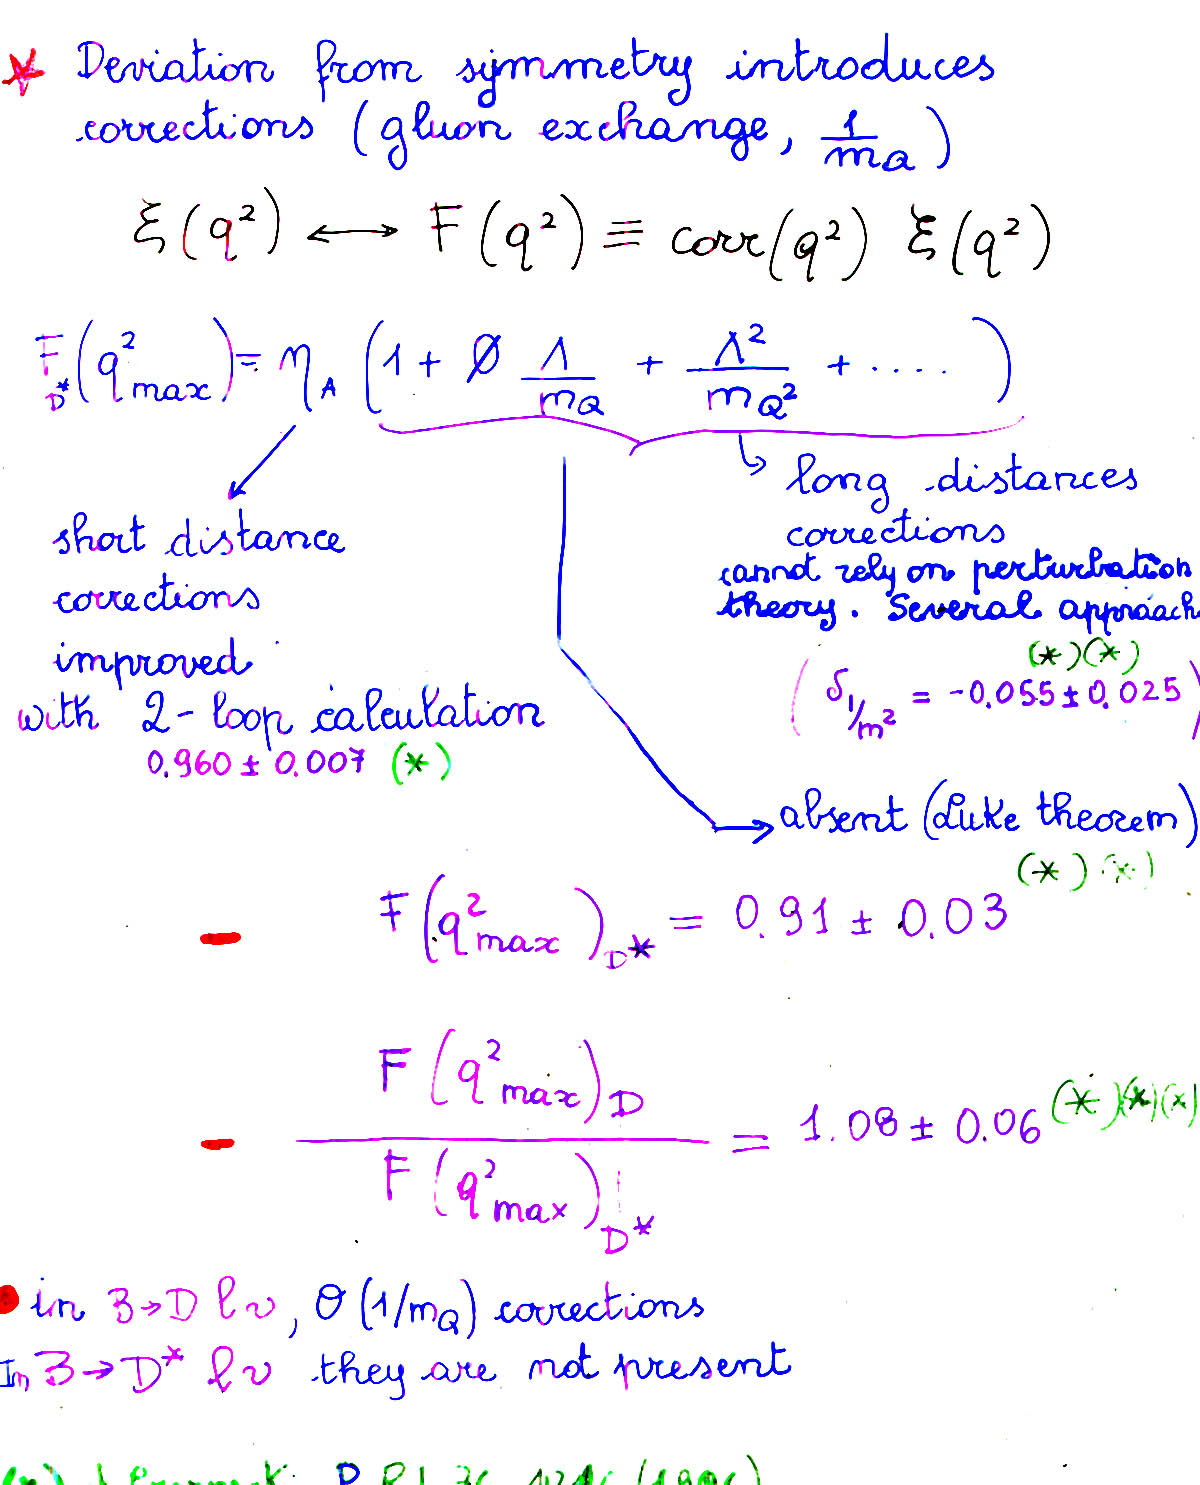 Deviation from symmetry introduces
corrections (gluon exchange, 1/mQ)
ξ(q²) ⟷ F(q²) ≡ corr(q²) ξ(q²)
F_D*(q²max) = ηA (1 + Ø Λ/mQ + Λ²/mQ² + ....)
short distance
corrections
improved
with 2-loop calculation
0.960 ± 0.007 (*)
long distances
corrections
cannot rely on perturbation
theory. Several approach
(*)(*)
(δ1/m² = -0.055 ± 0.025)
absent (Luke theorem)
- F(q²max)D* = 0.91 ± 0.03 (*)(*)
- F(q²max)D / F(q²max)D* = 1.08 ± 0.06 (*)(*)(*)
in B→D l ν, O(1/mQ) corrections
In B→D* l ν they are not present